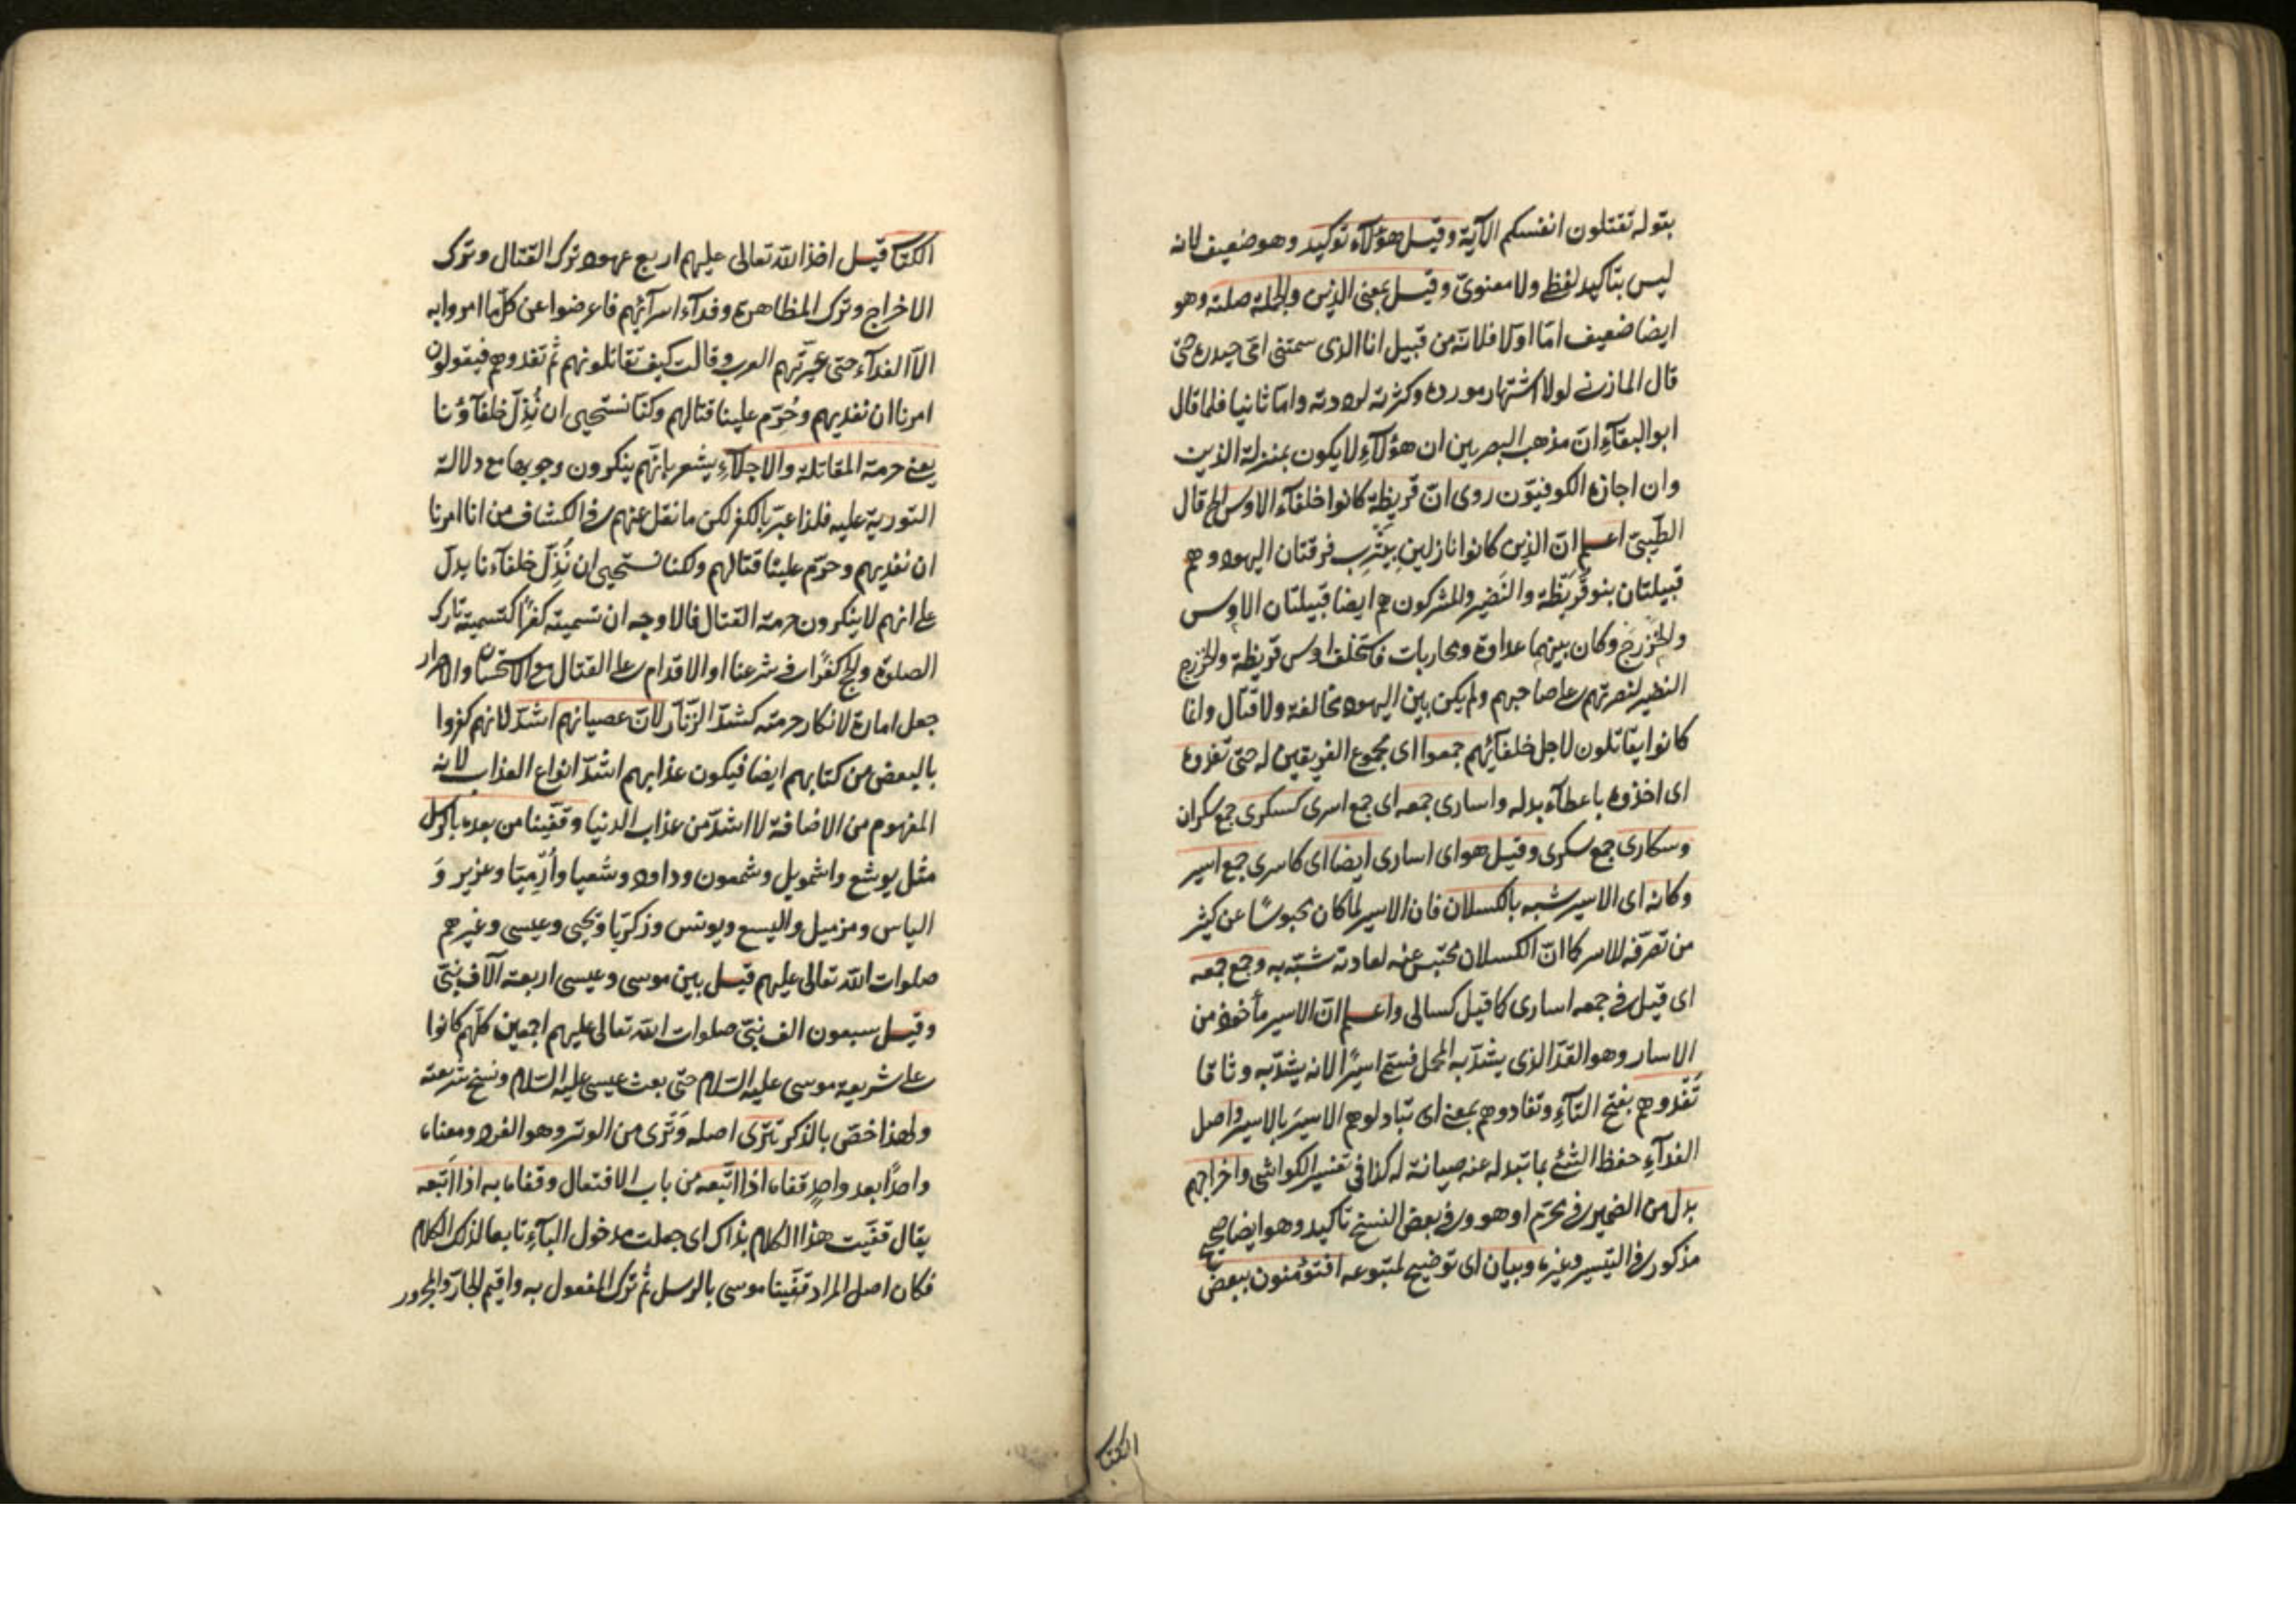 بقوله تقتلون انفسكم الآية وقيل هؤلآء توكيد وهو ضعيف لانه
ليس بتاكيد لفظى ولا معنوىّ وقيل بمعنى الذين والجملة صلته وهو
ايضا ضعيف امّا اولا فلانّه من قبيل انا الذى سمتنى امّى حيدره حتّى
قال المازنے لولا اشتهار مورده وكثرته لرددته وامّا ثانيا فلما قال
ابو البقآءِ انّ مذهب البصريين ان هؤلآءِ لا يكون بمنزلة الذين
وان اجازه الكوفيّون روى انّ قريظة كانوا خلفآء الاوس الخ قال
الطّيبىّ اعلم انّ الذين كانوا نازلين بيَثْرِب فرقتان اليهود وهم
قبيلتان بنو قُرَيْظة والنَضير والمشركون هم ايضا قبيلتان الاوس
والخَزرَج وكان بينهما عداوة ومحاربات فاستخلف اوس قريظة والخزرج
النضير لنصرتهم على صاحبهم ولم يكن بين اليهود مخالفة ولا قتال وانما
كانوا يقاتلون لاجل خلفآئهم جمعوا اى مجموع الفريقين له حتى تفدوه
اى اخذوه باعطآء بدله واسارى جمعه اى جمع اسرى كسكرى جمع سكران
وسكارى جمع سكرى وقيل هو اى اسارى ايضا اى كاسرى جمع اسير
وكانه اى الاسير شبه بالكسلان فان الاسير لمّا كان محبوسًا عن كثير
من تصرّفه للاسر كما انّ الكسلان محتبس عنه لعادته شبّه به وجمع جمعه
اى قيل فے جمعه اسارى كما قيل كسالى واعلم انّ الاسير مأخوذ من
الاسار وهو القدّ الذى يشدّ به المحمل فسمّى اسيرًا لانه يشدّ به وثاقا
تَفْدوهم بفتح التآءِ وتفادوهم بمعنے اى تبادلوهم الاسيرَ بالاسير واصل
الفدآءِ حفظ الشئ بما تبدله عنه صيانة له كذا فى تفسير الكواشى واخراجهم
بدل من الضمير فے محرّم او هو وفے بعض النسخ تاكيد وهو ايضا صحيح
مذكور فے التيسير وغيره وبيان اى توضيح لمتبوعه افتؤمنون ببعض
الكتا
الكتا قيل اخذ الله تعالى عليهم اربع عهود ترك القتال وترك
الاخراج وترك المظاهرة وفدآء اسرآئهم فاعرضوا عن كلّ ما امروا به
الّا الفدآء حتى عيّرتهم العرب وقالت كيف تقاتلونهم ثم تفدوهم فيقولون
امرنا ان نفديهم وحُرّم علينا قتالهم وكنّا نستحيى ان نُذِلّ خلفآؤنا
يعنے حرمة المقاتلة والاجلآءِ يشعر بانّهم ينكرون وجوبها مع دلالة
التورية عليه فلذا عبّر بالكفر لكن ما نقل عنهم فے الكشاف من انا امرنا
ان نفديهم وحرّم علينا قتالهم ولكنا نستحيى ان نُذِلّ خلفآءنا يدلّ
على انهم لا ينكرون حرمة القتال فالاوجه ان تسميته كفرًا كتسمية تارك
الصلوة والحج كفرًا فے شرعنا او الاقدام على القتال مع الاستحسان والاصرار
جعل امارة لانكار حرمته كشدّ الزّنّار لانّ عصيانهم اشدّ لانهم كفروا
بالبعض من كتابهم ايضا فيكون عذابهم اشدّ انواع العذاب لانه
المفهوم من الاضافة لا اشدّ من عذاب الدنيا وقفّينا من بعده بالرسل
مثل يوشع واشمويل وشمعون وداود وشعيا وأرميّا وعزير وَ
الياس وحزقيل واليسع ويونس وزكريّا ويحيى وعيسى وغيرهم
صلوات الله تعالى عليهم قيل بين موسى وعيسى اربعة آلاف نبىّ
وقيل سبعون الف نبىّ صلوات الله تعالى عليهم اجمعين كلّهم كانوا
على شريعة موسى عليه السّلام حتّى بعث عيسى عليه السّلام ونسخ شريعته
ولهذا خصّ بالذكر تترى اصله وَتْرى من الوتر وهو الفرد ومعناه
واحدًا بعد واحدٍ قفاه اذا اتّبعه من باب الافتعال وقفاه به اذا اتبعه
يقال قفّيت هذا الكلام بذاك اى جعلت مدخول البآءِ تابعا لذلك الكلام
فكان اصل المراد قفّينا موسى بالرسل ثم ترك المفعول به واقيم الجارّ والمجرور